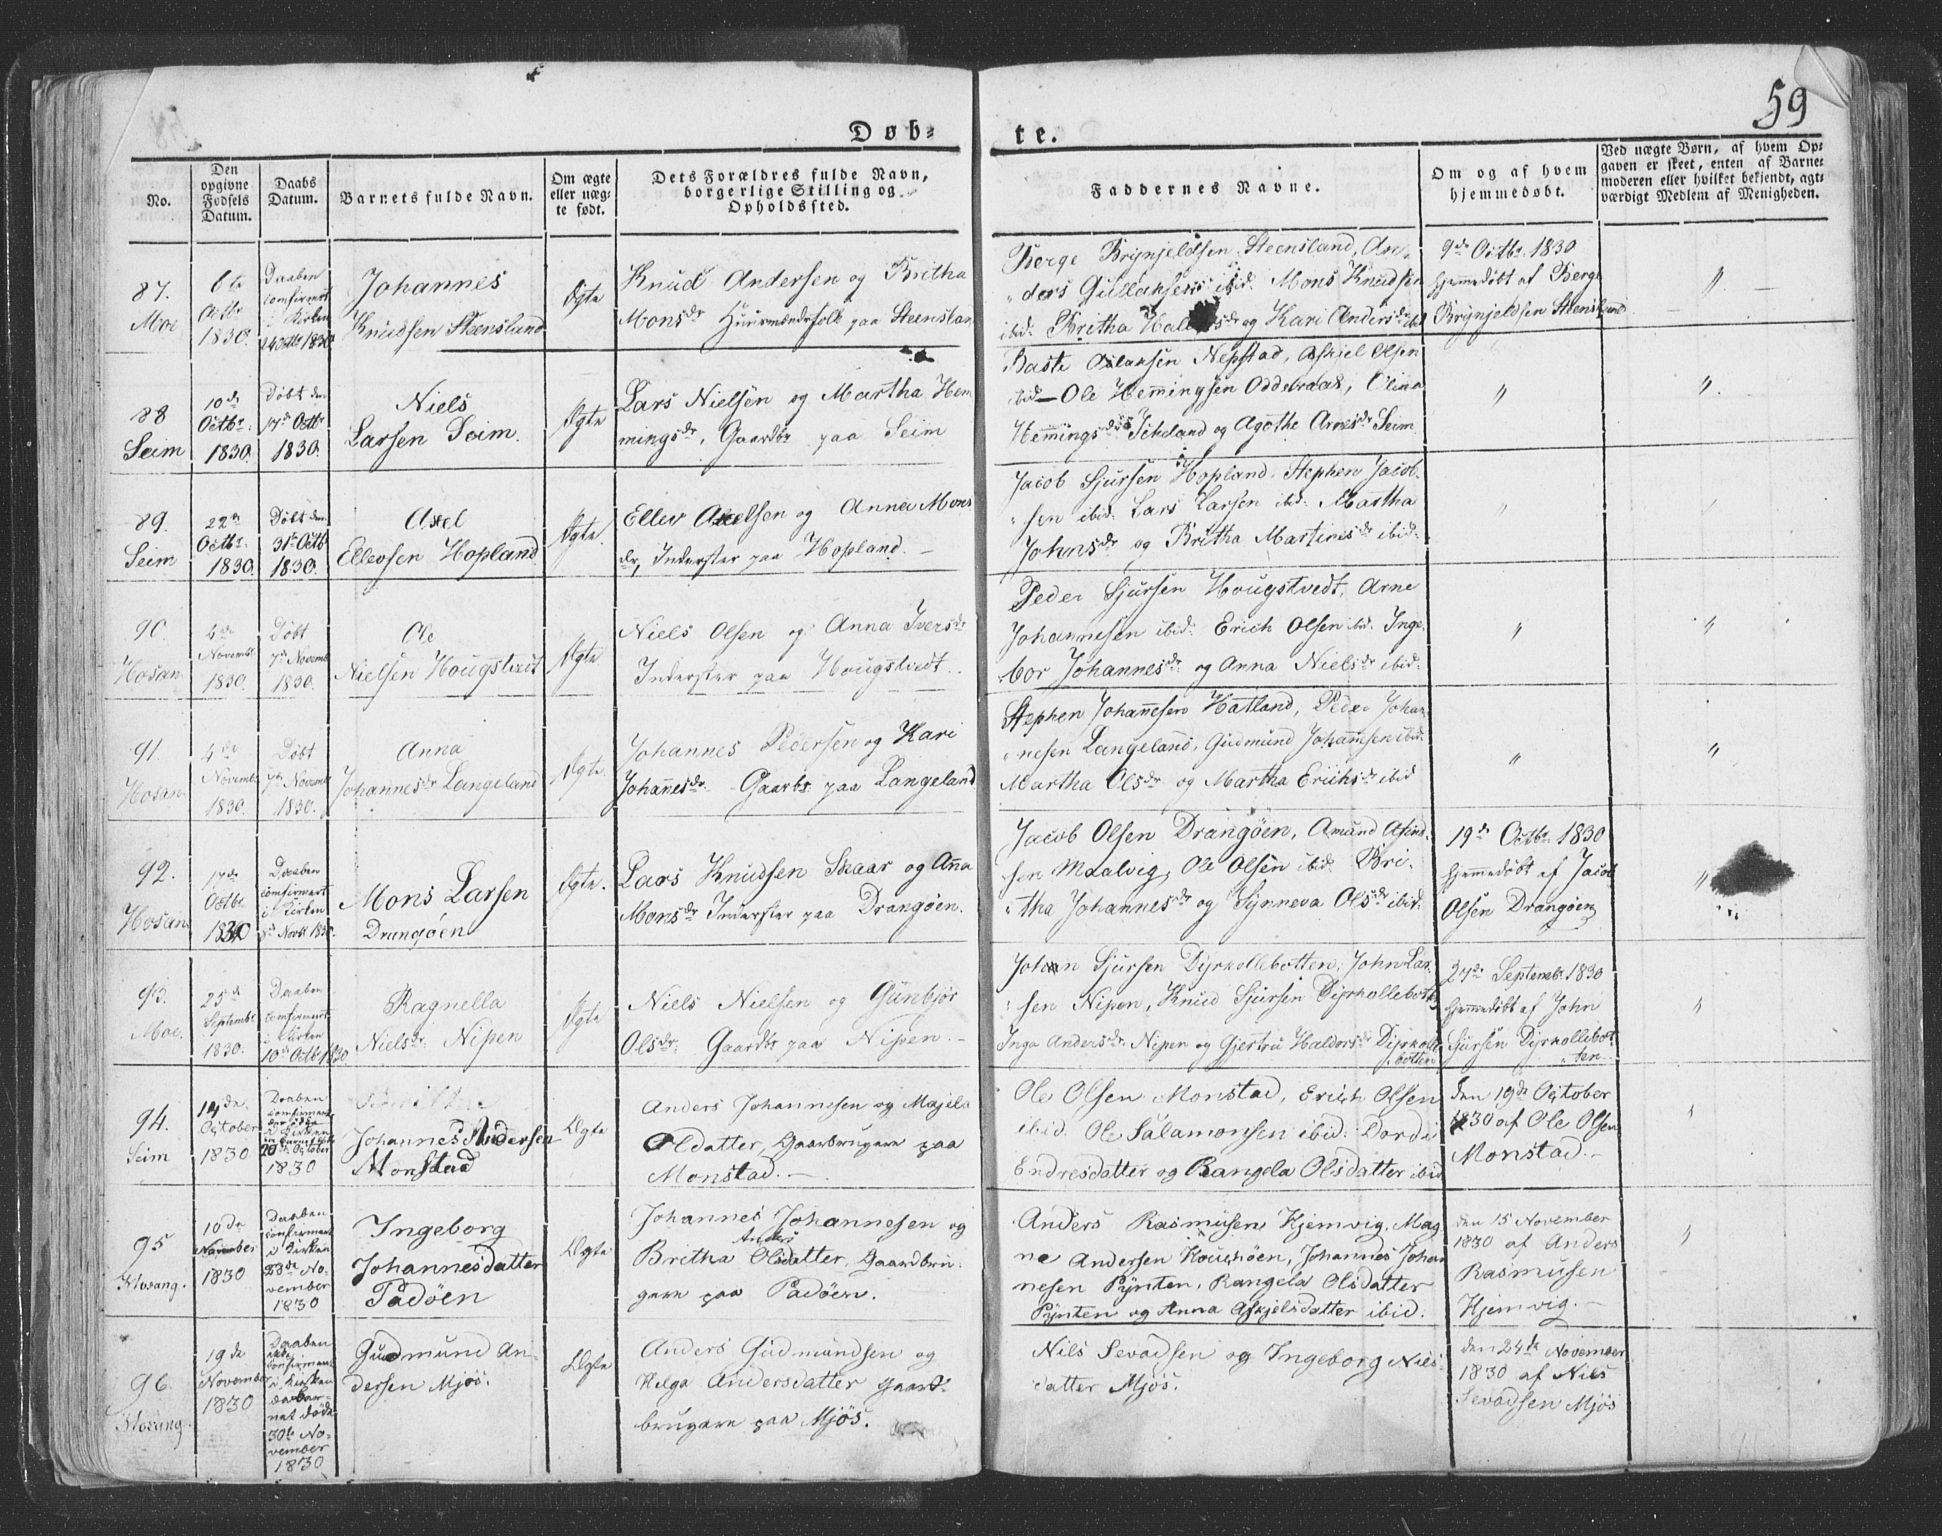 59
Døb-
te.
No.
Den
opgivne
Fødsels
Datum.
Daabs
Datum.
Barnets fulde Navn.
Om ægte
eller uæg-
te født.
Dets Forældres fulde Navn,
borgerlige Stilling og
Opholdssted.
Faddernes Navne.
Om og af hvem
hjemmedøbt.
Ved uægte Børn, af hvem Op-
gaven er skeet, enten af Barne-
moderen eller hvilket bekjendt, agt-
værdigt Medlem af Menigheden.
87.
Moe
6te
Octbr
1830.
Daaben
confirmert
i Kirken
24 Octbr 1830
Johannes
Knudsen Steensland
Ægte
Knud Andersen og Britha
Monsdr Huusmandsfolk paa Steensland
Berge Brynjeldsen Steensland, An-
ders Gullaksen ibid. Mons Knudsen
ibid. Britha og Kari Andersdr ibid
9de Octbr. 1830
hjemmedøbt af Berge
Brynjeldsen Steensland
"
88
Seim
10de
Octbr.
1830.
Døbt den
17de Octbr
1830.
Niels
Larsen Seim.
Ægte
Lars Nielsen og Martha Hem
mingsdr, Gaardbr paa Seim
Baste Nepstad, Askiel Olsen
ibid – Ole Hemmingsen Odderaas, Olina
Hemmingsdr Ickeland og Agothe Arnesdr Seim
"
"
89.
Seim
22de
Octbr.
1830.
Døbt den
31te Octbr
1830.
Axel
Ellevsen Hopland
Ægte.
Ellev Axelsen og Anna Mons
dr, Inderster paa Hopland. –
Jacob Sjursen Hopland. Stephen Jacob-
sen ibid: Lars Larsen ibid: Martha
Johnsdr og Britha Martinisdr ibid:
"
"
90.
Hosan
4de
Novembr.
1830.
Døbt
7de Novembr
1830.
Ole
Nielsen Hougstvedt
Ægte
Niels Olsen og Anna Iversdr
Inderster paa Hougstvedt.
Peder Sjursen Hougstvedt, Arne
Johannesen ibid: Erich Olsen ibid. Inge-
bor Johannesdr og Anna Nielsdr ibid:
"
"
91.
Hosan
4de
Novembr
1830.
Døbt
7de Novembr
1830.
Anna
Johannesdr Langeland
Ægte.
Johannes Pedersen og Kari
Johannesdr. Gaarbr. paa Langeland
Stephen Johannesen Hatland, Peder Johan-
nesen Langeland, Gudmund Johannesen ibid:
Martha Olsdr og Martha Erichsdr ibid
"
"
92.
Hosan
17de
Octbr
1830
Daaben
confirmert
i Kirken
8de Novbr 1830.
Mons Larsen
Drangøen
Ægte.
Lars Knudsen Skaar og Anna
Monsdr Inderster paa Drangøen.
Jacob Olsen Drangøen, Amund Asind-
sen Mdalvig, Ole Olsen ibid. Bri-
tha Johannesdr og Synneva Olsdr ibid:
19de Octbr. 1830
hjemmedøbt af Jacob
Olsen Drangøen
"
93.
Moe.
25de
Septembr.
1830.
Daaben
confirmert
i Kirken
10de Octbr 1830
Ragnella
Nielsdr. Nipen
Ægte
Niels Nielsen og Günbjør
Olsdr. Gaardbr paa Nipen. –
Johan Sjursen Dyrkollebotten, John Lar-
sen Nipen, Knud Sjursen Dyrkollebotten
Inga Andersdr. Nipen og Gjertru Haldorsdr Dyrkolle
botten
27de Septembr. 1830
hjemmedøbt af John
Sjursen Dyrkollebot
ten.
"
94.
Seim
14de.
October
1830
Daaben
confirmert
i Kirken
October
1830
Johannes Andersen
Monstad
Ægte
Anders Johannesen og Majela
Oldatter, Gaarbrugere paa
Monstad. –
Ole Olsen Monstad, Erich Olsen
ibid. Ole Salamonsen ibid: Dordi
Endresdatter og Rangela Olsdatter ibid
den 19de October
1830 af Ole Olsen
Monstad. –
"
95
Hosang.
10de
November
1830
Daaben
confirmert
i Kirken
28de No-
vember
1830
Ingeborg
Johannesdatter
Padøen
Ægte
Johannes Johannesen og
Anders
Britha Olsdatter, Gaardbru-
gere paa Padøen.
Anders Rasmusen Hjemvig, Mag
ne Andersen Kouhøen, Johannes Johan
nesen Pynten, Rangela Olsdatter
Pynten og Anna Askjelsdatter ibid.
den 15 November
1830 af Anders
Rasmussen
Hjemvig. –
"
96.
Hosang.
19de
November
1830
Daaben
ikke
confirmert
i Kirken
da Bar-
net døde
30te No-
vember
1830
Gudmund An-
dersen Mjøs.
Ægte
Anders Gudmundsen og
Helga Andersdatter Gaard-
brugere paa Mjøs.
Nils Sevadsen og Ingeborg Nils-
datter Mjøs.
den 24de November
1830 af Nils
Sevadsen Mjøs